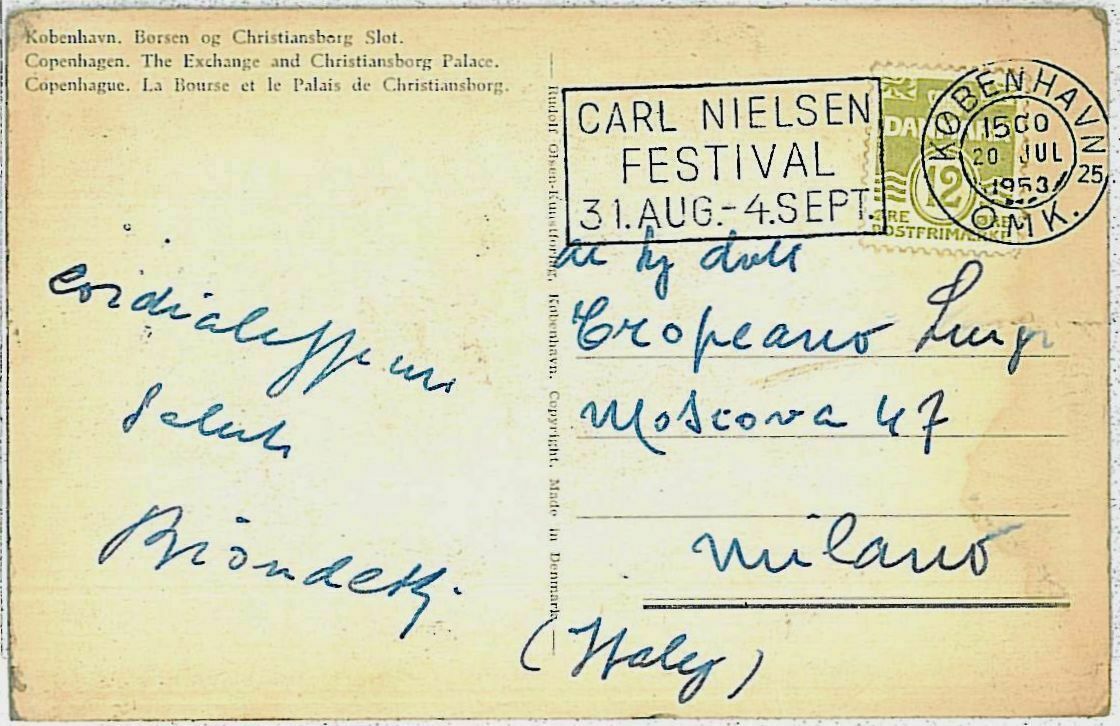 København. Børsen og Christiansborg Slot.
Copenhagen. The Exchange and Christiansborg Palace.
Copenhague. La Bourse et le Palais de Christiansborg.
CARL NIELSEN
FESTIVAL
31.AUG.-4.SEPT.
KØBENHAVN
1500
20 JUL
1953
25
OMK.
DANMARK
12
ØRE ØRE
POSTFRIMÆRKE
Rudolf Olsen-Kunstforlag, København. Copyright. Made in Denmark
Tropeano Luigi
Moscova 47
Milano
(Italy)
Cordialissimi
Saluti
Biondetti